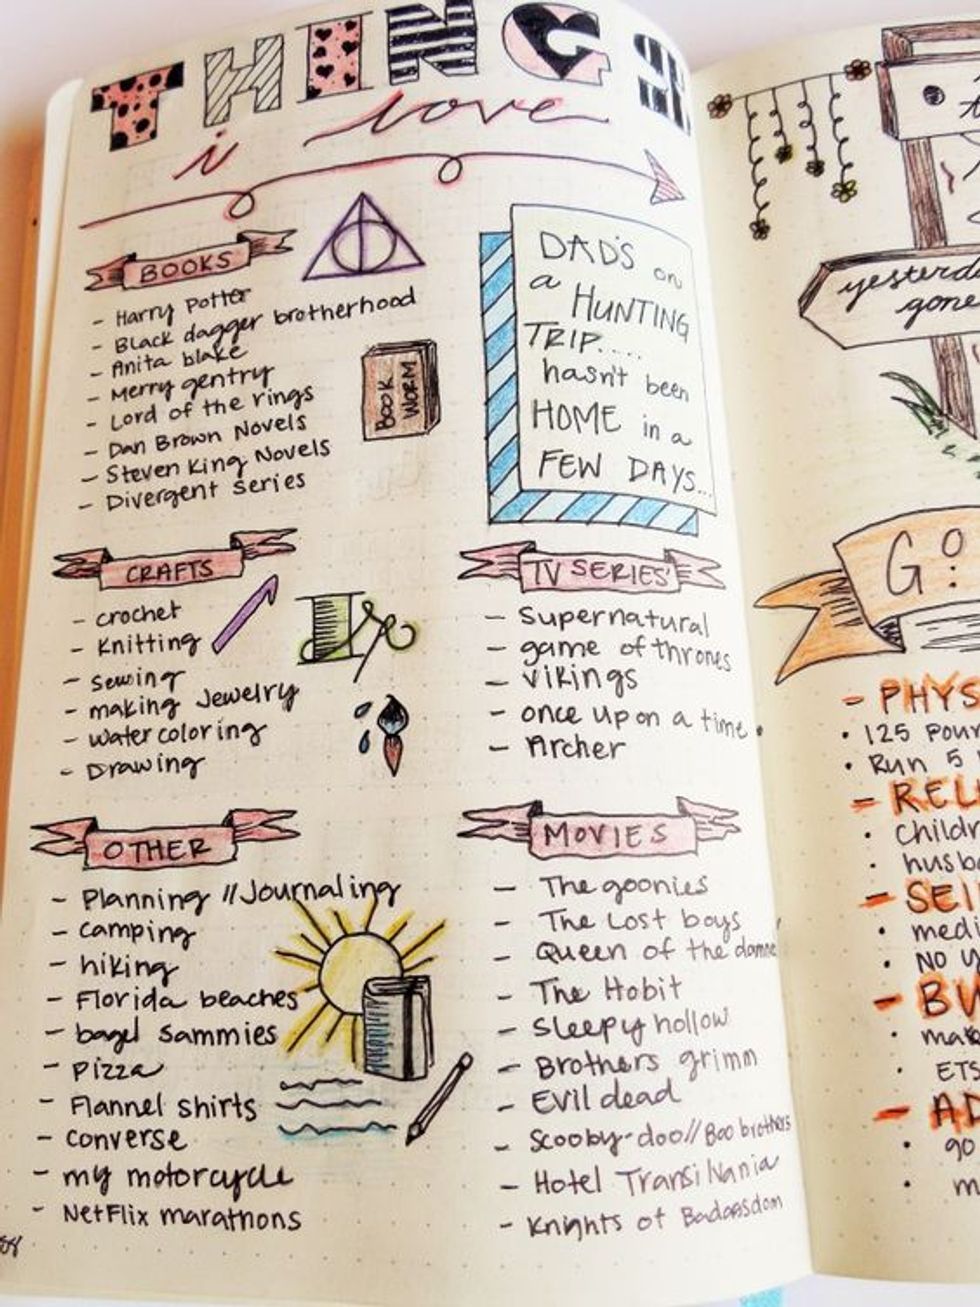 THINGS
i love
BOOKS
- Harry Potter
- Black dagger brotherhood
- Anita blake
- Merry gentry
- Lord of the rings
- Dan Brown Novels
- Steven King Novels
- Divergent series
BOOK
WORM
DAD'S on
a HUNTING
TRIP....
hasn't been
HOME in a
FEW DAYS...
CRAFTS
- crochet
- Knitting
- sewing
- making Jewelry
- water coloring
- Drawing
TV SERIES'
- Supernatural
- game of thrones
- vikings
- once upon a time
- Archer
OTHER
- Planning // Journaling
- camping
- hiking
- Florida beaches
- bagel sammies
- pizza
- Flannel shirts
- converse
- my motorcycle
- NetFlix marathons
MOVIES
- The goonies
- The Lost boys
- Queen of the damne
- The Hobit
- Sleepy hollow
- Brothers grimm
- Evil dead
- Scooby-doo // Boo brothers
- Hotel Transilvania
- Knights of Badassdom
yesterd
gone
GO
- PHYS
• 125 pour
• Run 5
- REL
• Childr
• husb
- SEL
• medi
• NO
- BU
• mak
• ETS
- AD
• go
• m